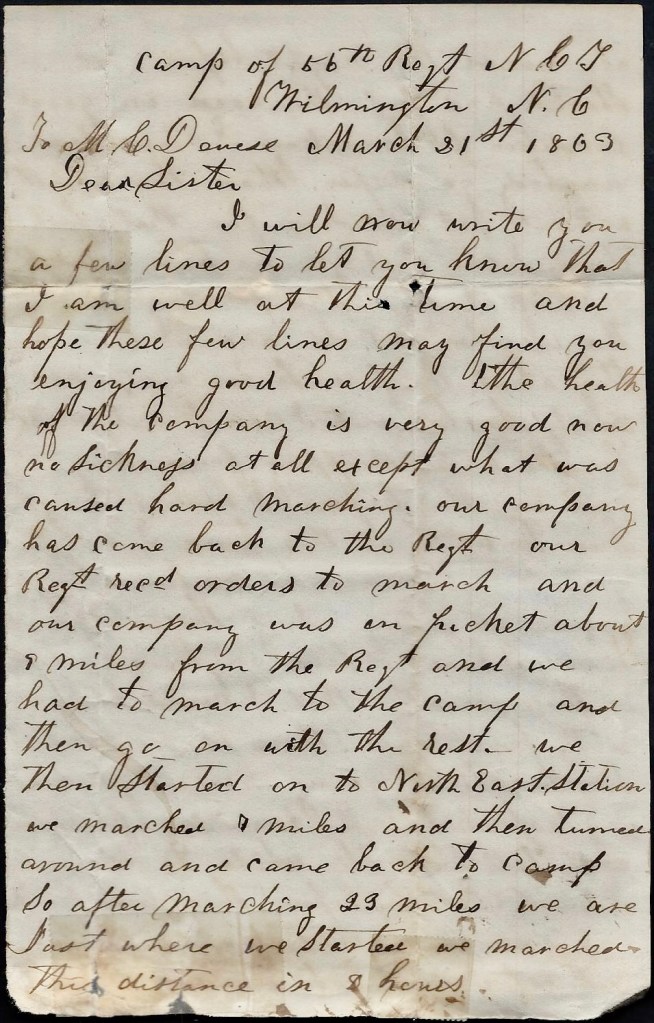 Camp of 56th Regt N C T
Wilmington N. C
To M. C. Devese March 21st 1863
Dear Sister
I will now write you
a few lines to let you know that
I am well at this time and
hope these few lines may find you
enjoying good health. the health
of the company is very good now
no sickness at all except what was
caused hard marching. our company
has come back to the Regt our
Regt recd orders to march and
our company was on picket about
8 miles from the Regt and we
had to march to the camp and
then go on with the rest— we
then started on to North East. Station
we marched miles and then turned
around and came back to camp
So after marching 23 miles we are
Just where we started we marched
this distance in 8 hours.